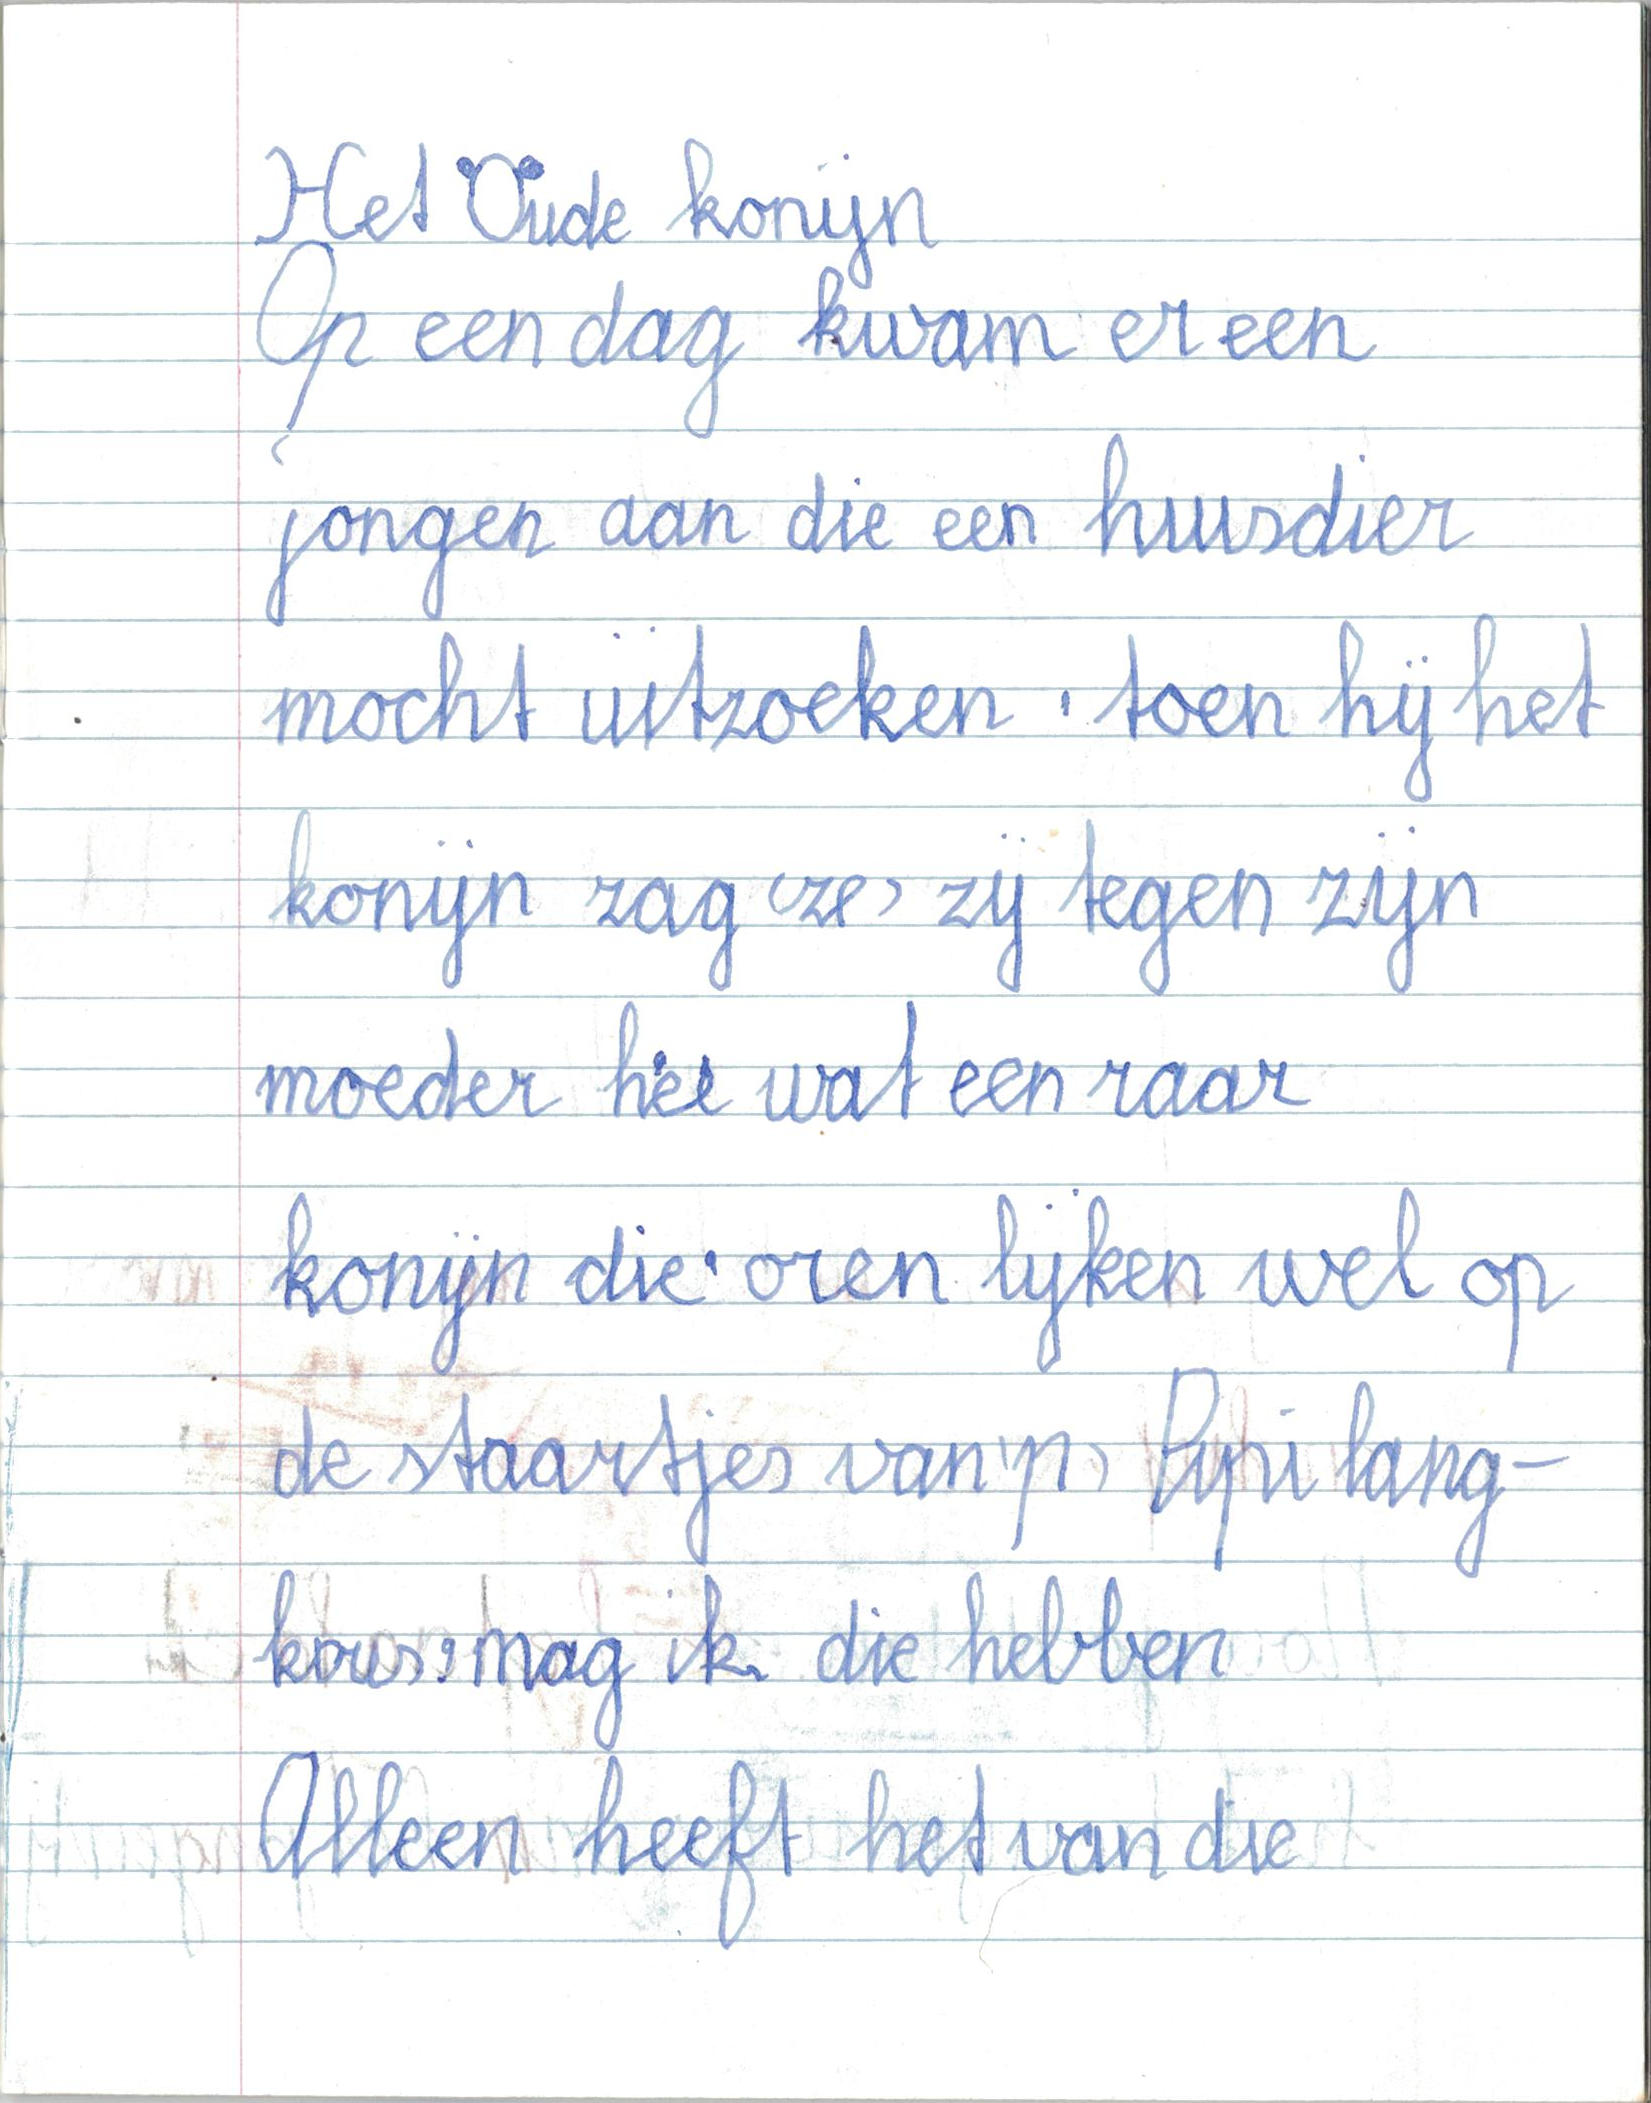 Het Oude konijn
Op een dag kwam er een
jongen aan die een huisdier
mocht uitzoeken . toen hij het
konijn zag (ze) zij tegen zijn
moeder héé wat een raar
konijn die oren lijken wel op
de staartjes van (p) Pipi lang-
kous: mag ik die hebben
Alleen heeft het van die